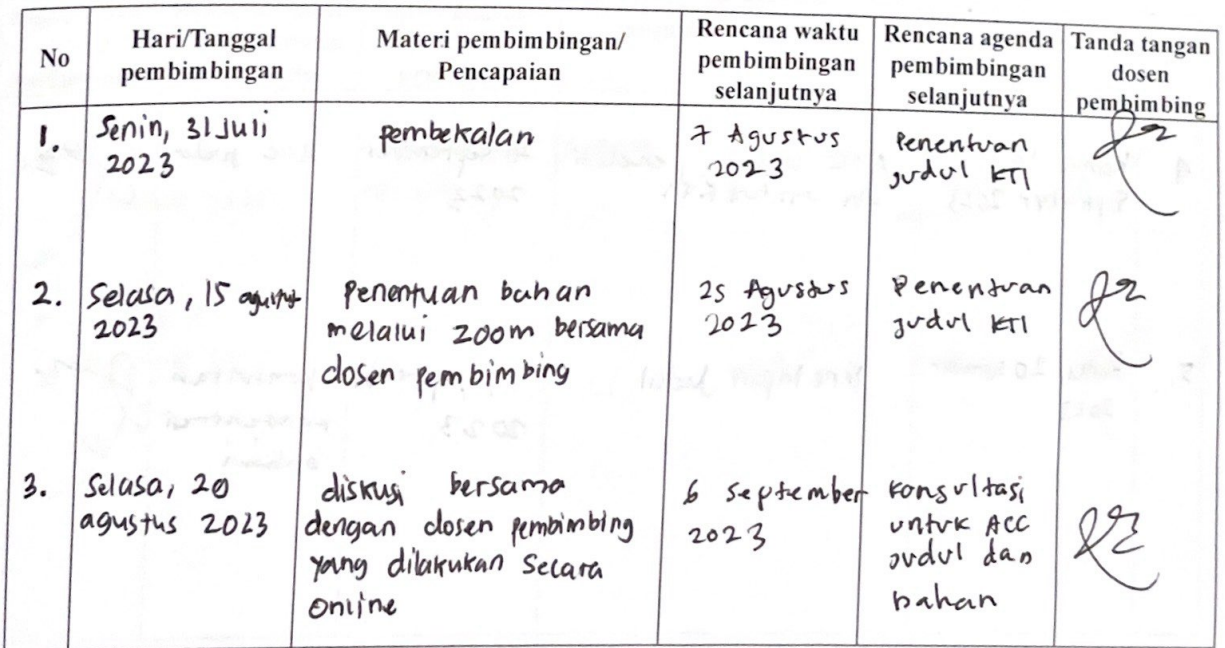 No
Hari/Tanggal
pembimbingan
Materi pembimbingan/
Pencapaian
Rencana waktu
pembimbingan
selanjutnya
Rencana agenda
pembimbingan
selanjutnya
Tanda tangan
dosen
pembimbing
1.
Senin, 31 Juli
2023
pembekalan
7 Agustus
2023
Penentuan
judul KTI
2.
Selasa, 15 agustus
2023
Penentuan bahan
melalui zoom bersama
dosen pembimbing
25 Agustus
2023
Penentuan
judul KTI
3.
Selasa, 20
agustus 2023
diskusi bersama
dengan dosen pembimbing
yang dilakukan secara
online
6 september
2023
Konsultasi
untuk ACC
judul dan
bahan